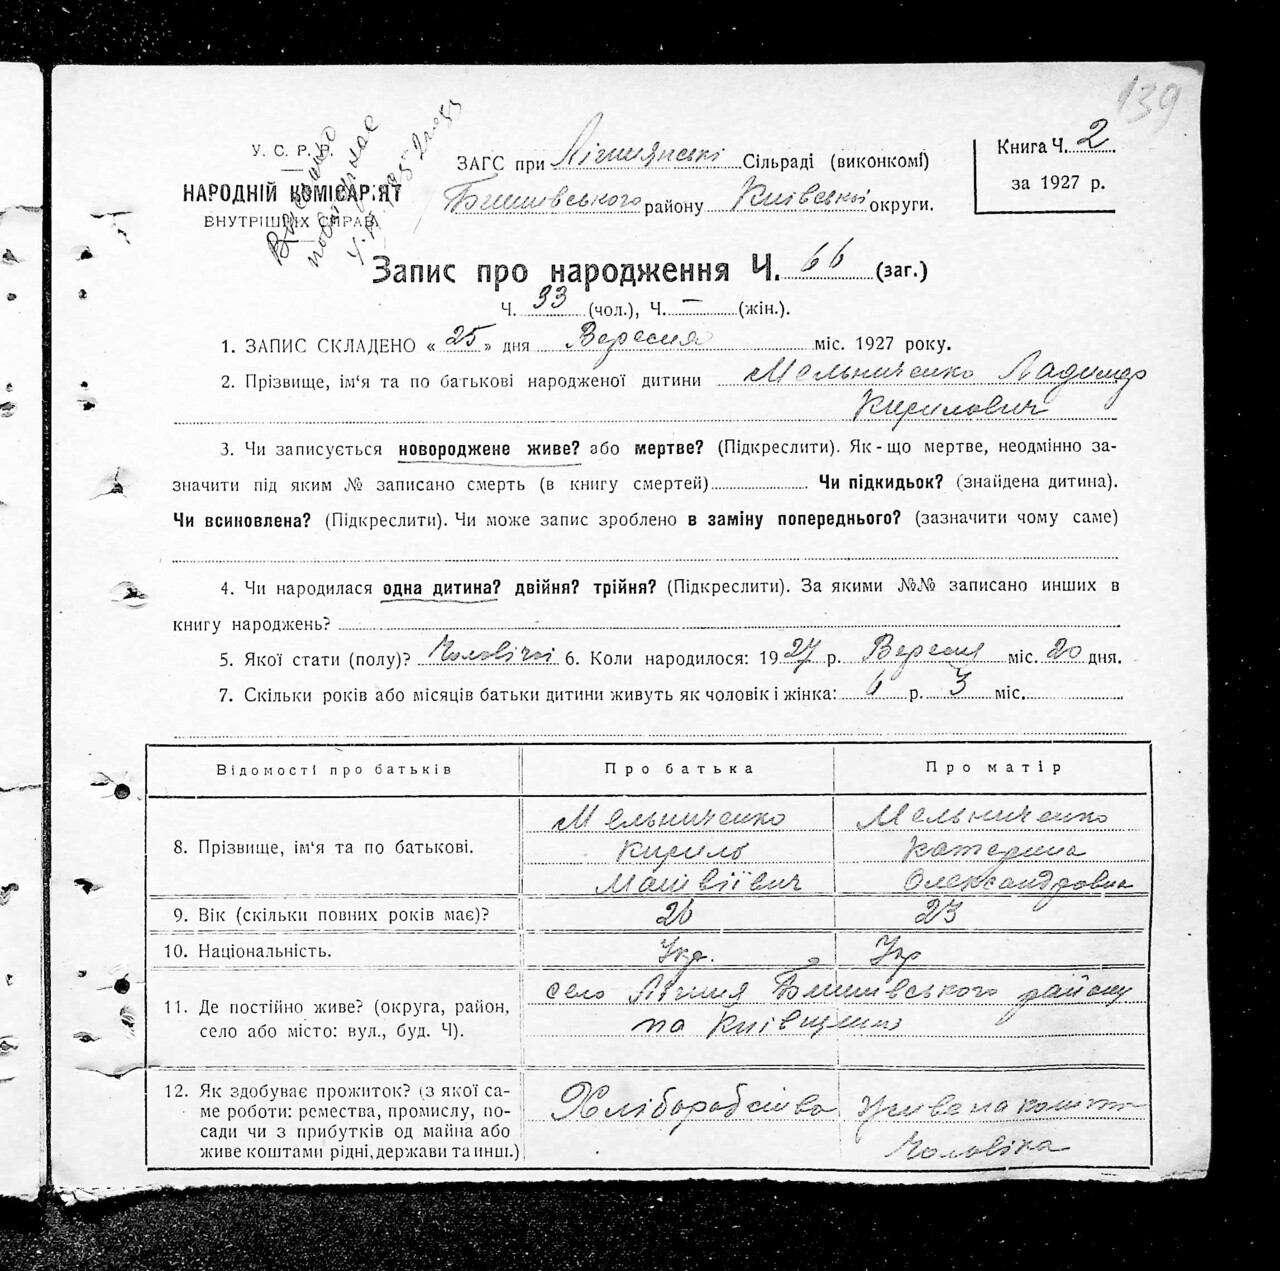 139
У. С. Р. Р.
НАРОДНІЙ КОМІСАРІЯТ
ВНУТРІШНІХ СПРАВ
ЗАГС при Лішнянські Сільраді (виконкомі)
Бишівського району Київської округи.
Книга Ч. 2
за 1927 р.
Запис про народження Ч. 66 (заг.)
Ч. 33 (чол.), Ч. — (жін.).
1. ЗАПИС СКЛАДЕНО « 25 » дня Вересня міс. 1927 року.
2. Прізвище, ім'я та по батькові народженої дитини Мельниченко Ладимар
Кирилович
3. Чи записується новороджене живе? або мертве? (Підкреслити). Як-що мертве, неодмінно за-
значити під яким № записано смерть (в книгу смертей) Чи підкидьок? (знайдена дитина).
Чи всиновлена? (Підкреслити). Чи може запис зроблено в заміну попереднього? (зазначити чому саме)
4. Чи народилася одна дитина? двійня? трійня? (Підкреслити). За якими №№ записано инших в
книгу народжень?
5. Якої стати (полу)? Чоловічої 6. Коли народилося: 1927 р. Вересня міс. 20 дня.
7. Скільки років або місяців батьки дитини живуть як чоловік і жінка: 6 р. 3 міс.
Відомості про батьків Про батька Про матір
8. Прізвище, ім'я та по батькові.
Мельниченко
Кирило
Матвіївич
Мельниченко
Катерина
Олександровна
9. Вік (скільки повних років має)? 26 23
10. Національність. Укр. Укр
11. Де постійно живе? (округа, район,
село або місто: вул., буд. Ч).
село Лішня Бишівського району
на Київщині
12. Як здобуває прожиток? (з якої са-
ме роботи: ремества, промислу, по-
сади чи з прибутків од майна або
живе коштами рідні, держави та инш.)
Хліборобство
Живе на кошти
Чоловіка